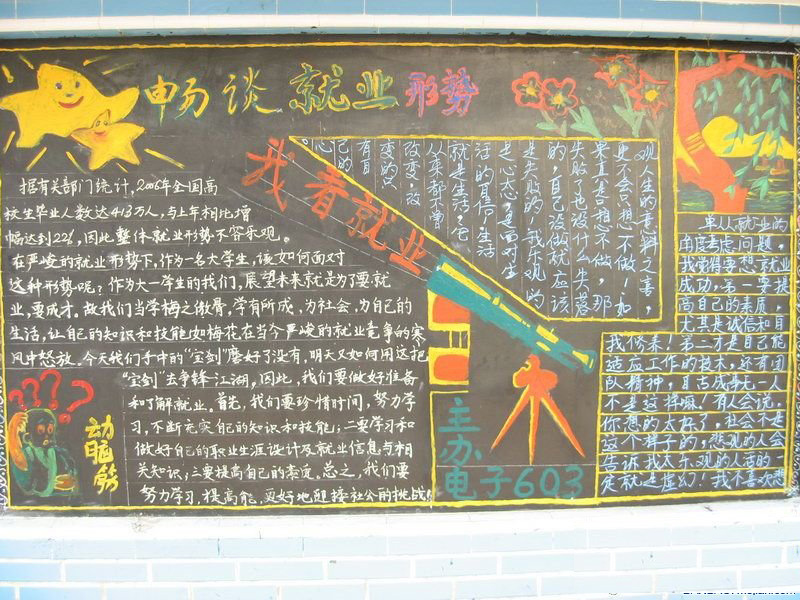 畅谈就业形势
我看就业
据有关部门统计,2006年全国高
校生毕业人数达413万人,与上年相比增
幅达到22%,因此整体就业形势不容乐观。
在严峻的就业形势下,作为一名大学生,该如何面对
这种形势呢?作为大一学生的我们,展望未来就是为了要就
业,要成才。故我们当学梅之傲骨,学有所成,为社会,为自己的
生活,让自己的知识和技能如梅花在当今严峻的就业竞争的寒
风中怒放。今天我们手中的“宝剑”磨好了没有,明天又如何用这把
“宝剑”去争锋江湖。因此,我们要做好准备
和了解就业。首先,我们要珍惜时间,努力学
习,不断充实自己的知识和技能;二要学习和
做好自己的职业生涯设计及就业信息与相
关知识;三要提高自己的素质。总之,我们要
努力学习,提高能,更好地迎接社会的挑战!
动脑筋
观人生的意料之喜,
更不会只想不做!如
果真是只想不做,那
失败了也没什么失落
的,自己没做就应该
是失败的。我乐观的
是心态,更面对生
活的自信。生活
就是生活,它
从来都不曾
改变,改
变的只
有自
己的
心
主办
电子603
单从就业的
角度考虑问题,
我觉得要想就业
成功,第一要提
高自己的素质,
尤其是诚信和自
我修养!第二才是自己能
适应工作的技术,还有团
队精神,自古成事无一人
不是这样嘛!有人会说,
你想的太好了,社会不是
这个样子的,悲观的人会
告诉我太乐观的人活的一
定就是虚幻!我不喜欢悲